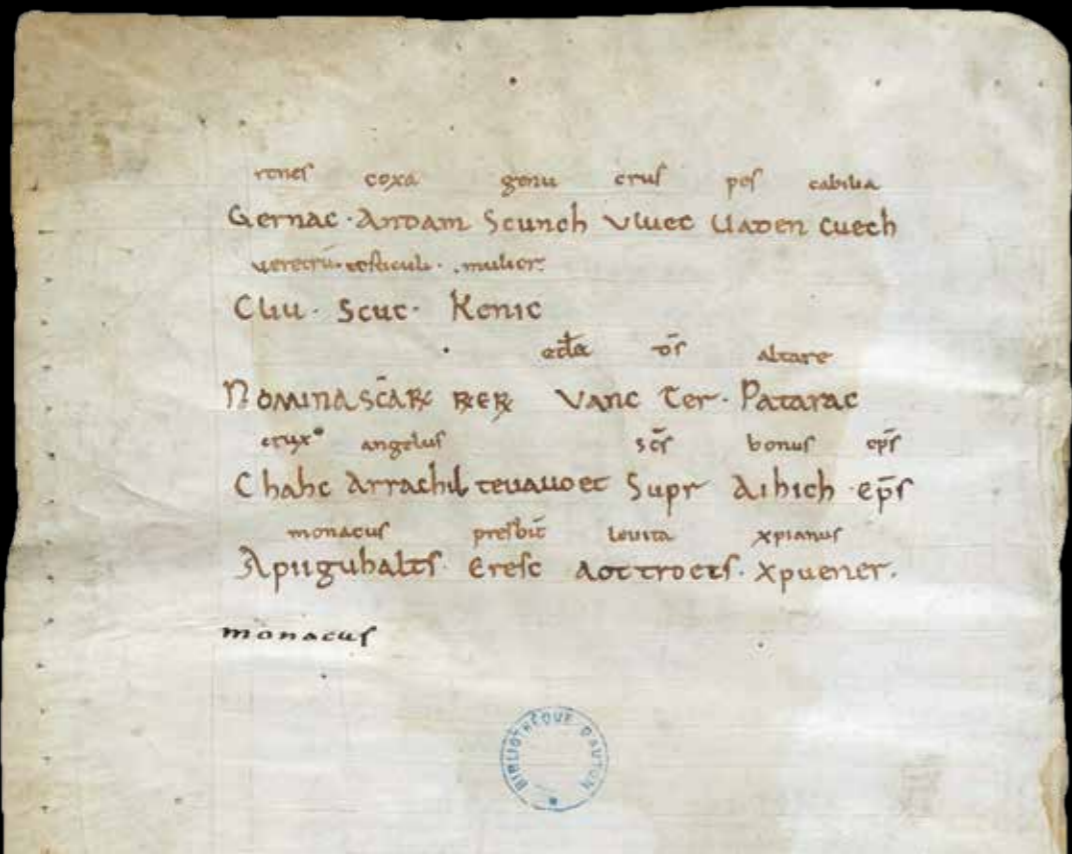 renes coxa genu crus pes cabilia
Gernac · Andam Scunch Vluec Uaden Cuech
ueretrū · testiculi · mulier
Cliu · Scuc · Kenic
ecl̄a d̄s altare
NOMINA SCĀRꝜ RERꝜ Vanc Ter · Patarac
crux angelus sc̄s bonus ep̄s
Chahc Arrachil teuauoet Supr Aihich · ep̄s
monacus presbiт̄ leuita xpianus
Apiiguhalts · Eresc Aottroets · Xpuener ·
monacus
BIBLIOTHÈQUE D'AUTUN